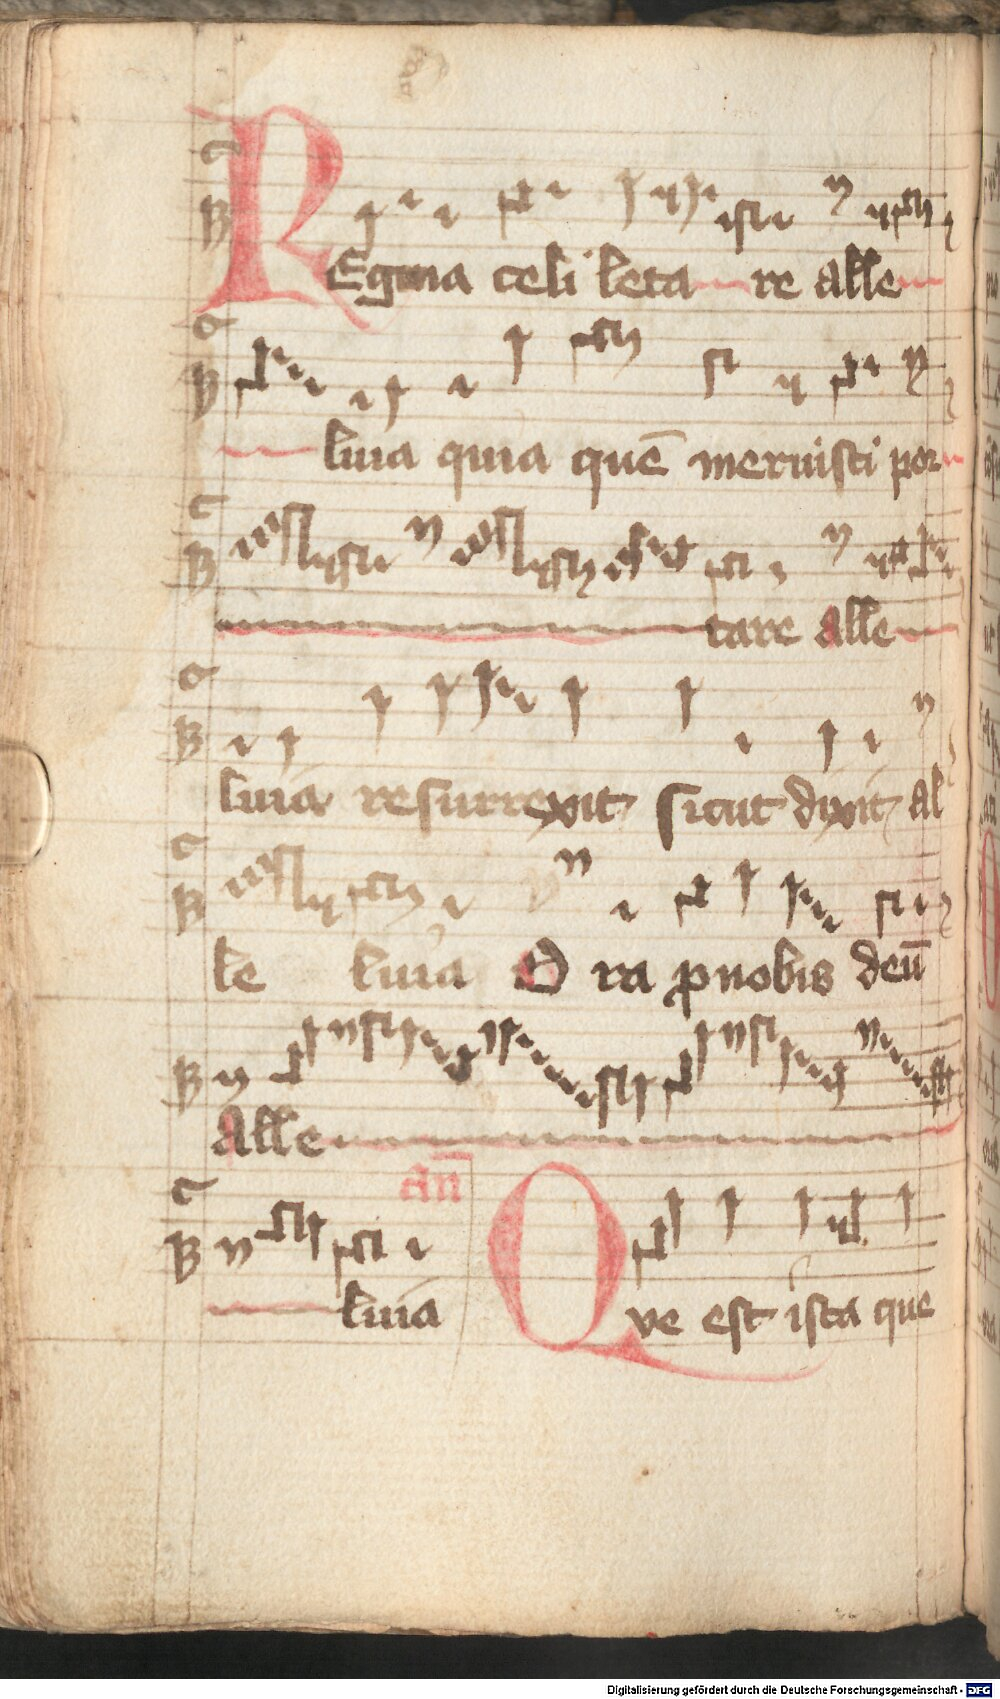 REgina celi leta re alle
luia quia quē meruisti por
tare alle
luia resurrexit sicut dixit al
le luia O ra p nobis deū
Alle
an̄
luia Qve est ista que
Digitalisierung gefördert durch die Deutsche Forschungsgemeinschaft - DFG